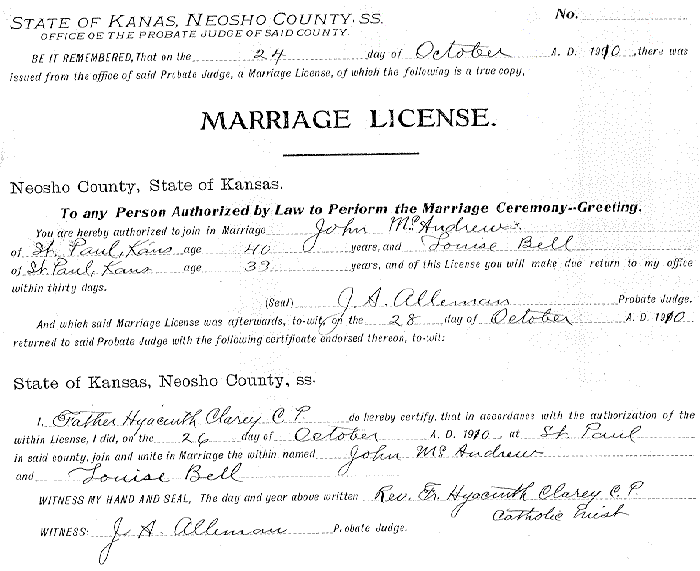 STATE OF KANAS, NEOSHO COUNTY, SS. No.
OFFICE OE THE PROBATE JUDGE OF SAID COUNTY.
BE IT REMEMBERED, That on the 24 day of October A. D. 1910, there was
issued from the office of said Probate Judge, a Marriage License, of which the following is a true copy,
MARRIAGE LICENSE.
Neosho County, State of Kansas.
To any Person Authorized by Law to Perform the Marriage Ceremony--Greeting.
You are hereby authorized to join in Marriage John McAndrews
of St. Paul, Kans age 40 years, and Louise Bell
of St. Paul, Kans age 39 years, and of this License you will make due return to my office
within thirty days.
(Seal) J. A. Alleman Probate Judge.
And which said Marriage License was afterwards, to-wit, on the 28 day of October A. D. 1910
returned to said Probate Judge with the following certificate endorsed thereon, to-wit:
State of Kansas, Neosho County, ss.
I, Father Hyacinth Clarey C. P. do hereby certify, that in accordance with the authorization of the
within License, I did, on the 26 day of October A. D. 1910 at St. Paul
in said county, join and unite in Marriage the within named John McAndrew
and Louise Bell
WITNESS MY HAND AND SEAL, The day and year above written Rev. Fr. Hyacinth Clarey C. P.
Catholic Priest
WITNESS: J. A. Alleman Probate Judge.